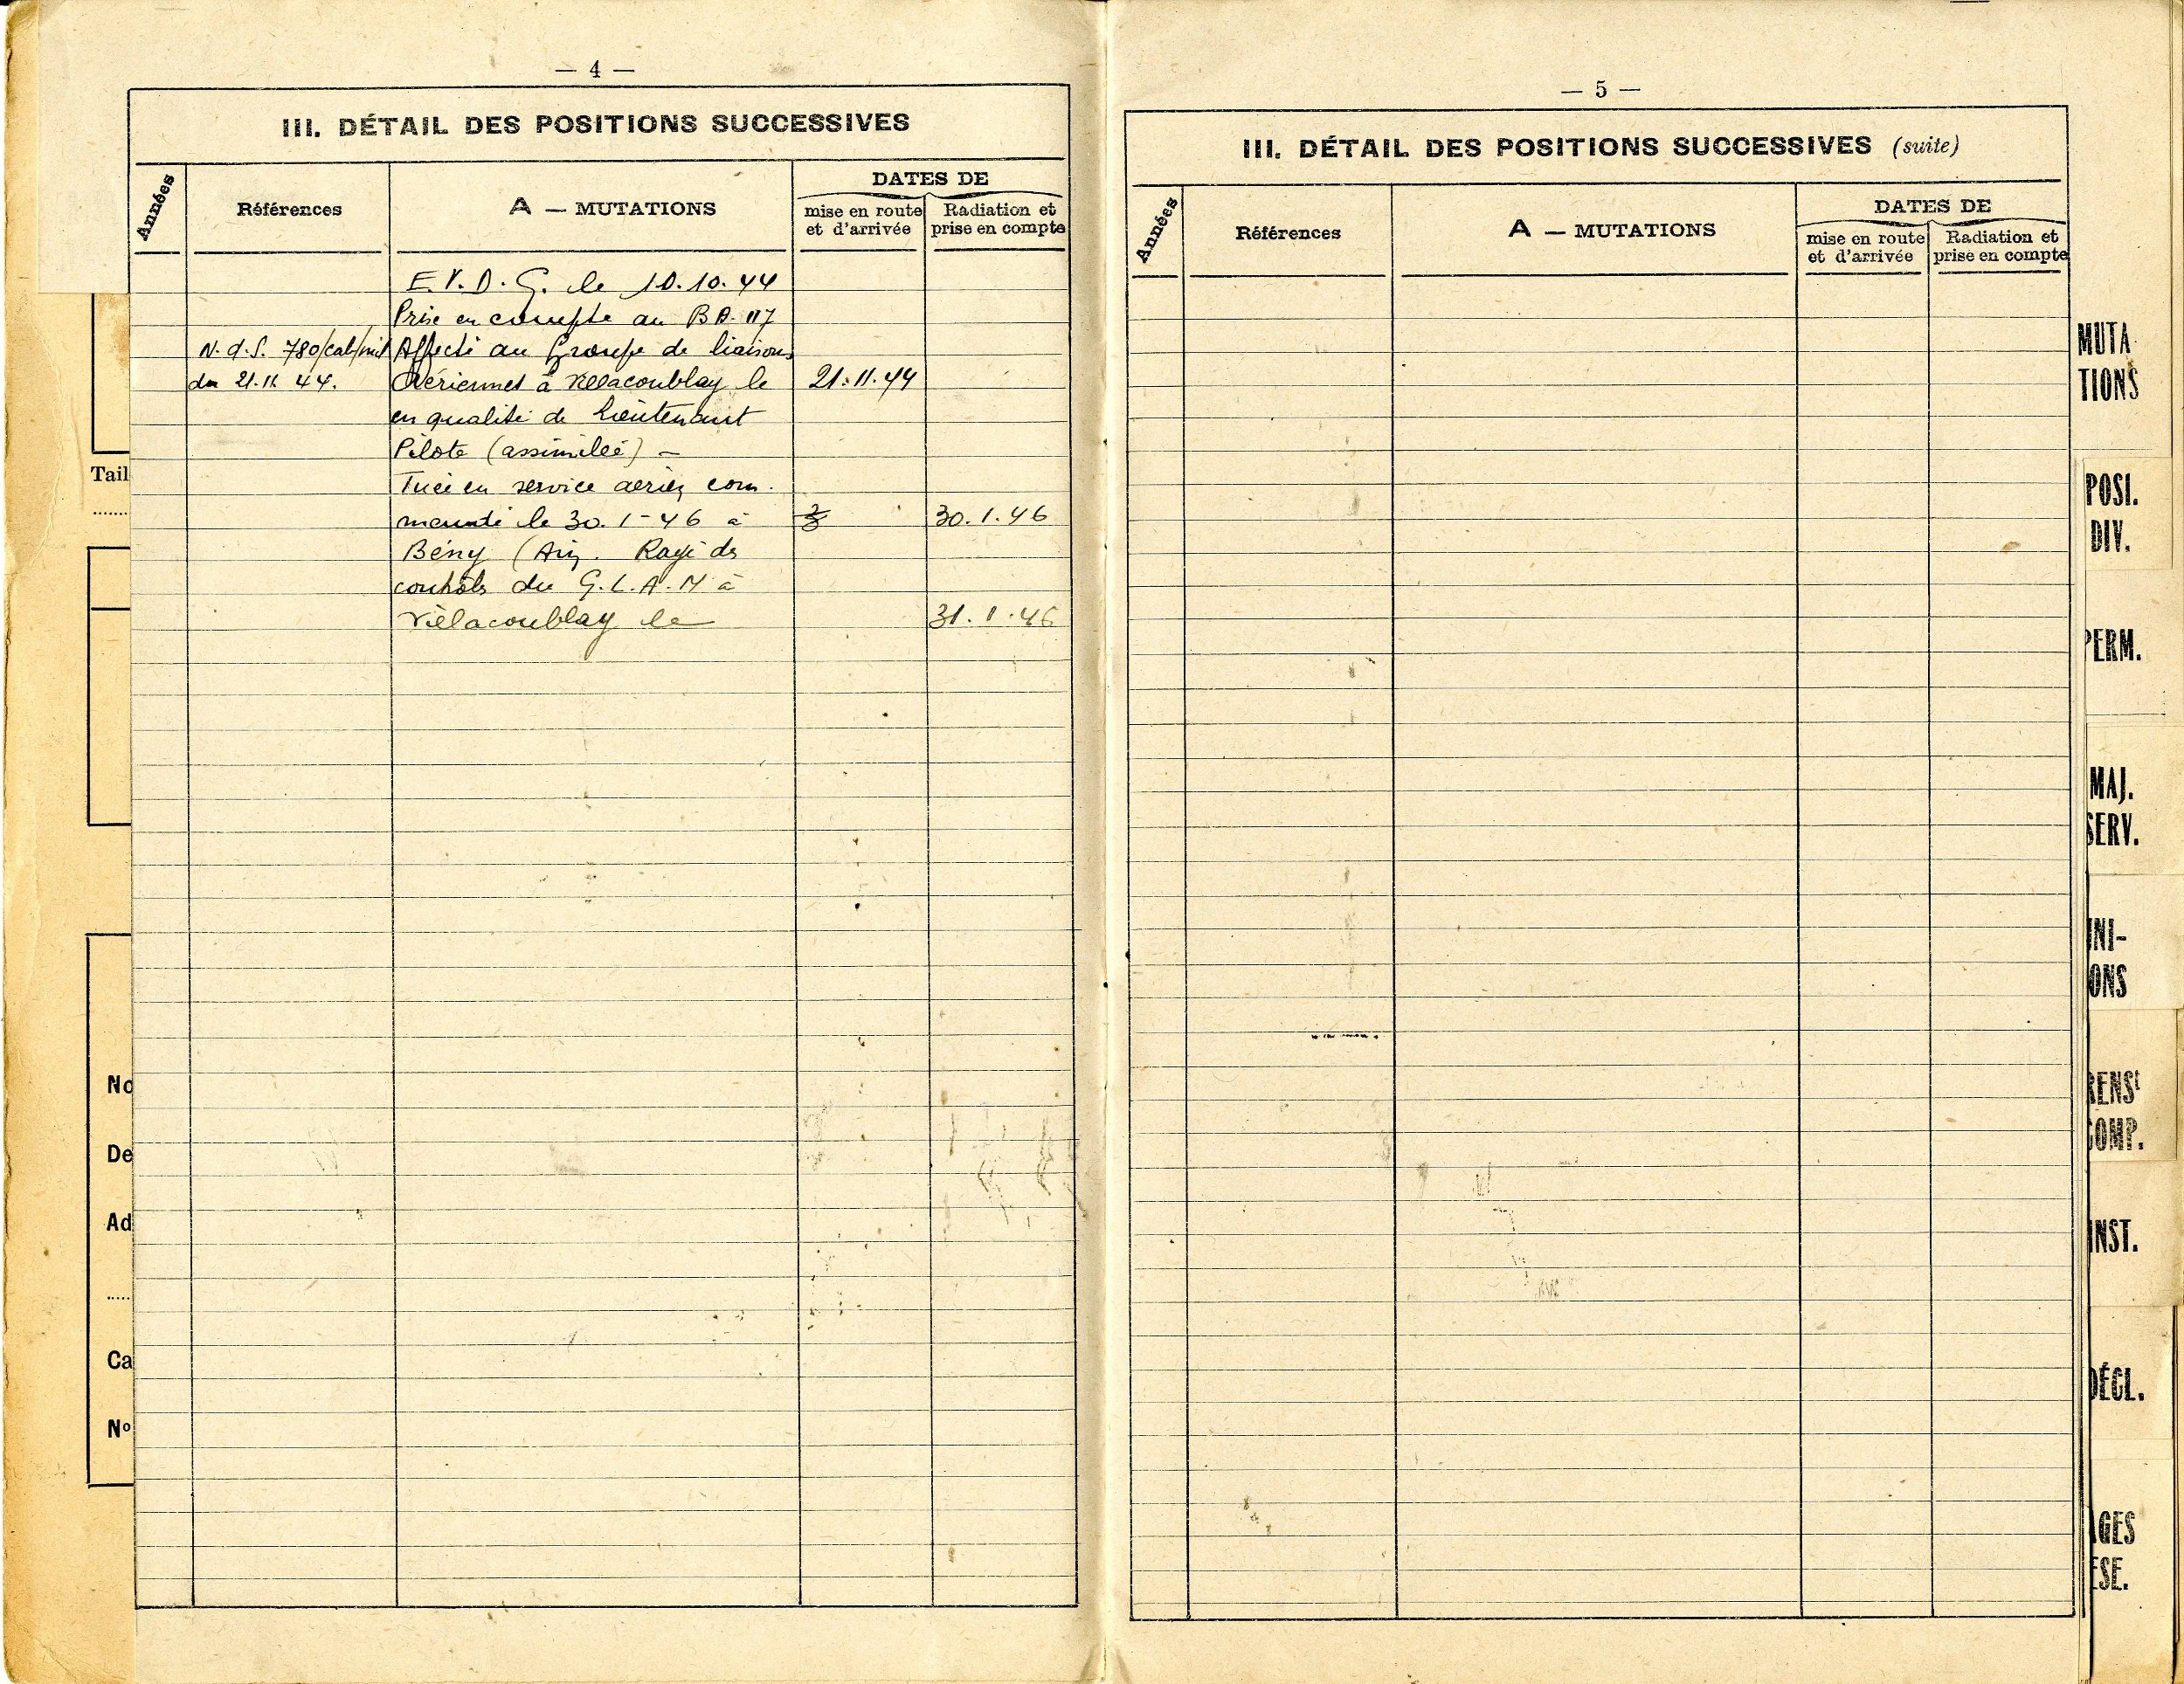 — 4 —
III. DÉTAIL DES POSITIONS SUCCESSIVES
Années
Références
A — MUTATIONS
DATES DE
mise en route et d'arrivée
Radiation et prise en compte
E.V.D.G. le 10.10.44
Prise en compte au BA. 117
N.d.S. 780/cab/mil Affecté au Groupe de liaisons
du 21.11 44. Aériennes à Villacoublay le 21.11.44
en qualité de Lieutenant
Pilote (assimilée) —
Tuée en service aérien com.
mandé le 30.1-46 à 30.1.46
Bény (Ain. Rayé des
contrôles du G.L.A.M à
Villacoublay le 31.1.46
Tail
No
De
Ad
Ca
No
— 5 —
III. DÉTAIL DES POSITIONS SUCCESSIVES (suite)
Années
Références
A — MUTATIONS
DATES DE
mise en route et d'arrivée
Radiation et prise en compte
MUTA
TIONS
POSI.
DIV.
PERM.
MAJ.
SERV.
NI-
ONS
RENSt
COMP.
INST.
DÉCL.
GES
ESE.